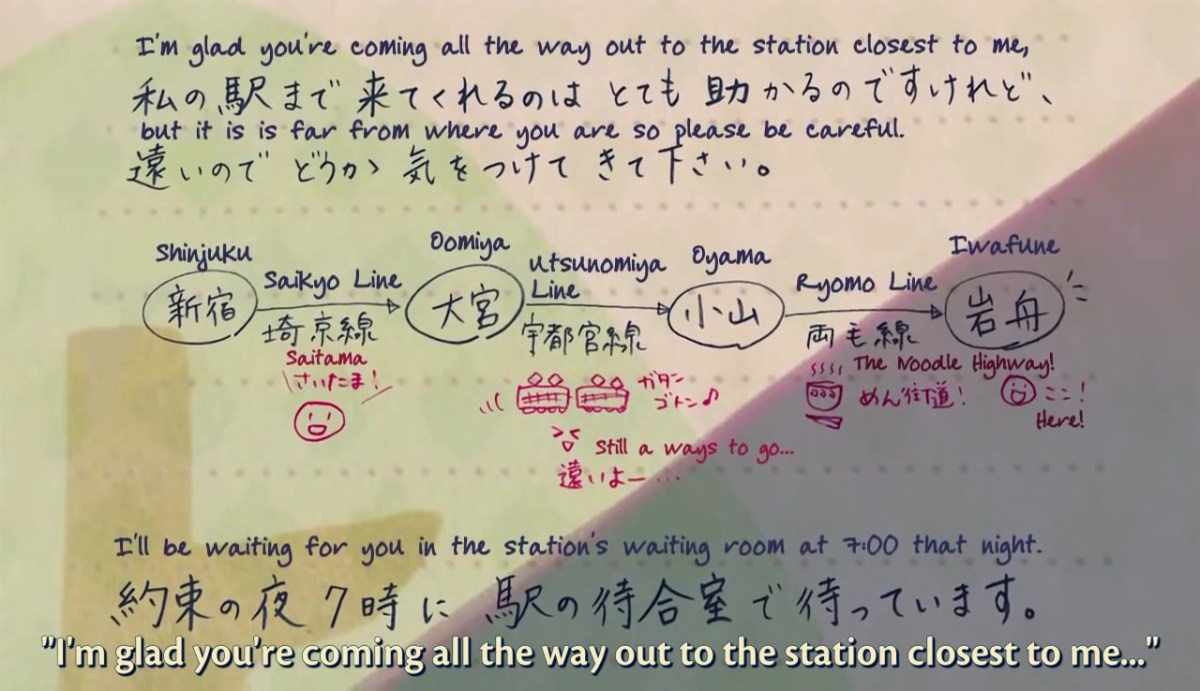 I'm glad you're coming all the way out to the station closest to me,
私の駅まで来てくれるのはとても助かるのですけれど、
but it is is far from where you are so please be careful.
遠いのでどうか気をつけてきて下さい。
Shinjuku
新宿
Saikyo Line
埼京線
Saitama
さいたま!
Oomiya
大宮
Utsunomiya
Line
宇都宮線
ガタン
ゴトン♪
Still a ways to go...
遠いよー…
Oyama
小山
Ryomo Line
両毛線
The Noodle Highway!
めん街道!
Iwafune
岩舟
ここ!
Here!
I'll be waiting for you in the station's waiting room at 7:00 that night.
約束の夜7時に駅の待合室で待っています。
"I'm glad you're coming all the way out to the station closest to me..."